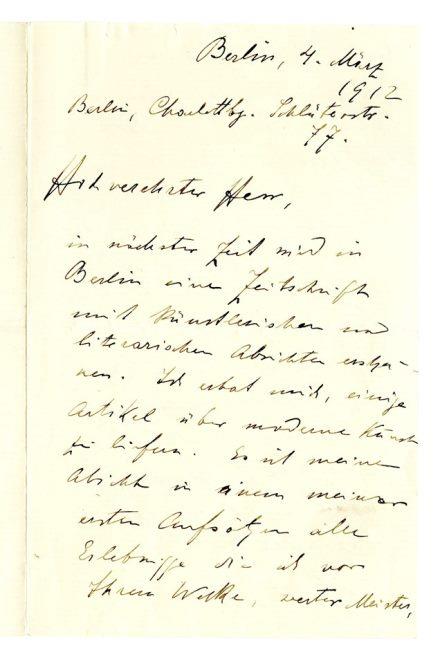 Berlin, 4. März
1912
Berlin, Charlottbg. Schlüterstr.
77.
Hochverehrter Herr,
in nächster Zeit wird in
Berlin eine Zeitschrift
mit künstlerischen und
literarischen Absichten erschei-
nen. Ich erbot mich, einige
Artikel über moderne Kunst
zu liefern. Es ist meine
Absicht in einem meiner
ersten Aufsätzen alle
Erlebnisse die ich vor
Ihrem Werke, werter Meister,